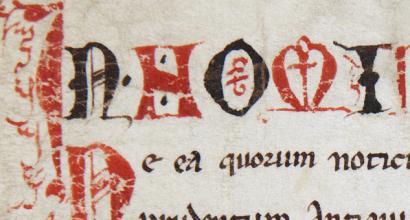 IN·NOMI
Ne ea quorum notici